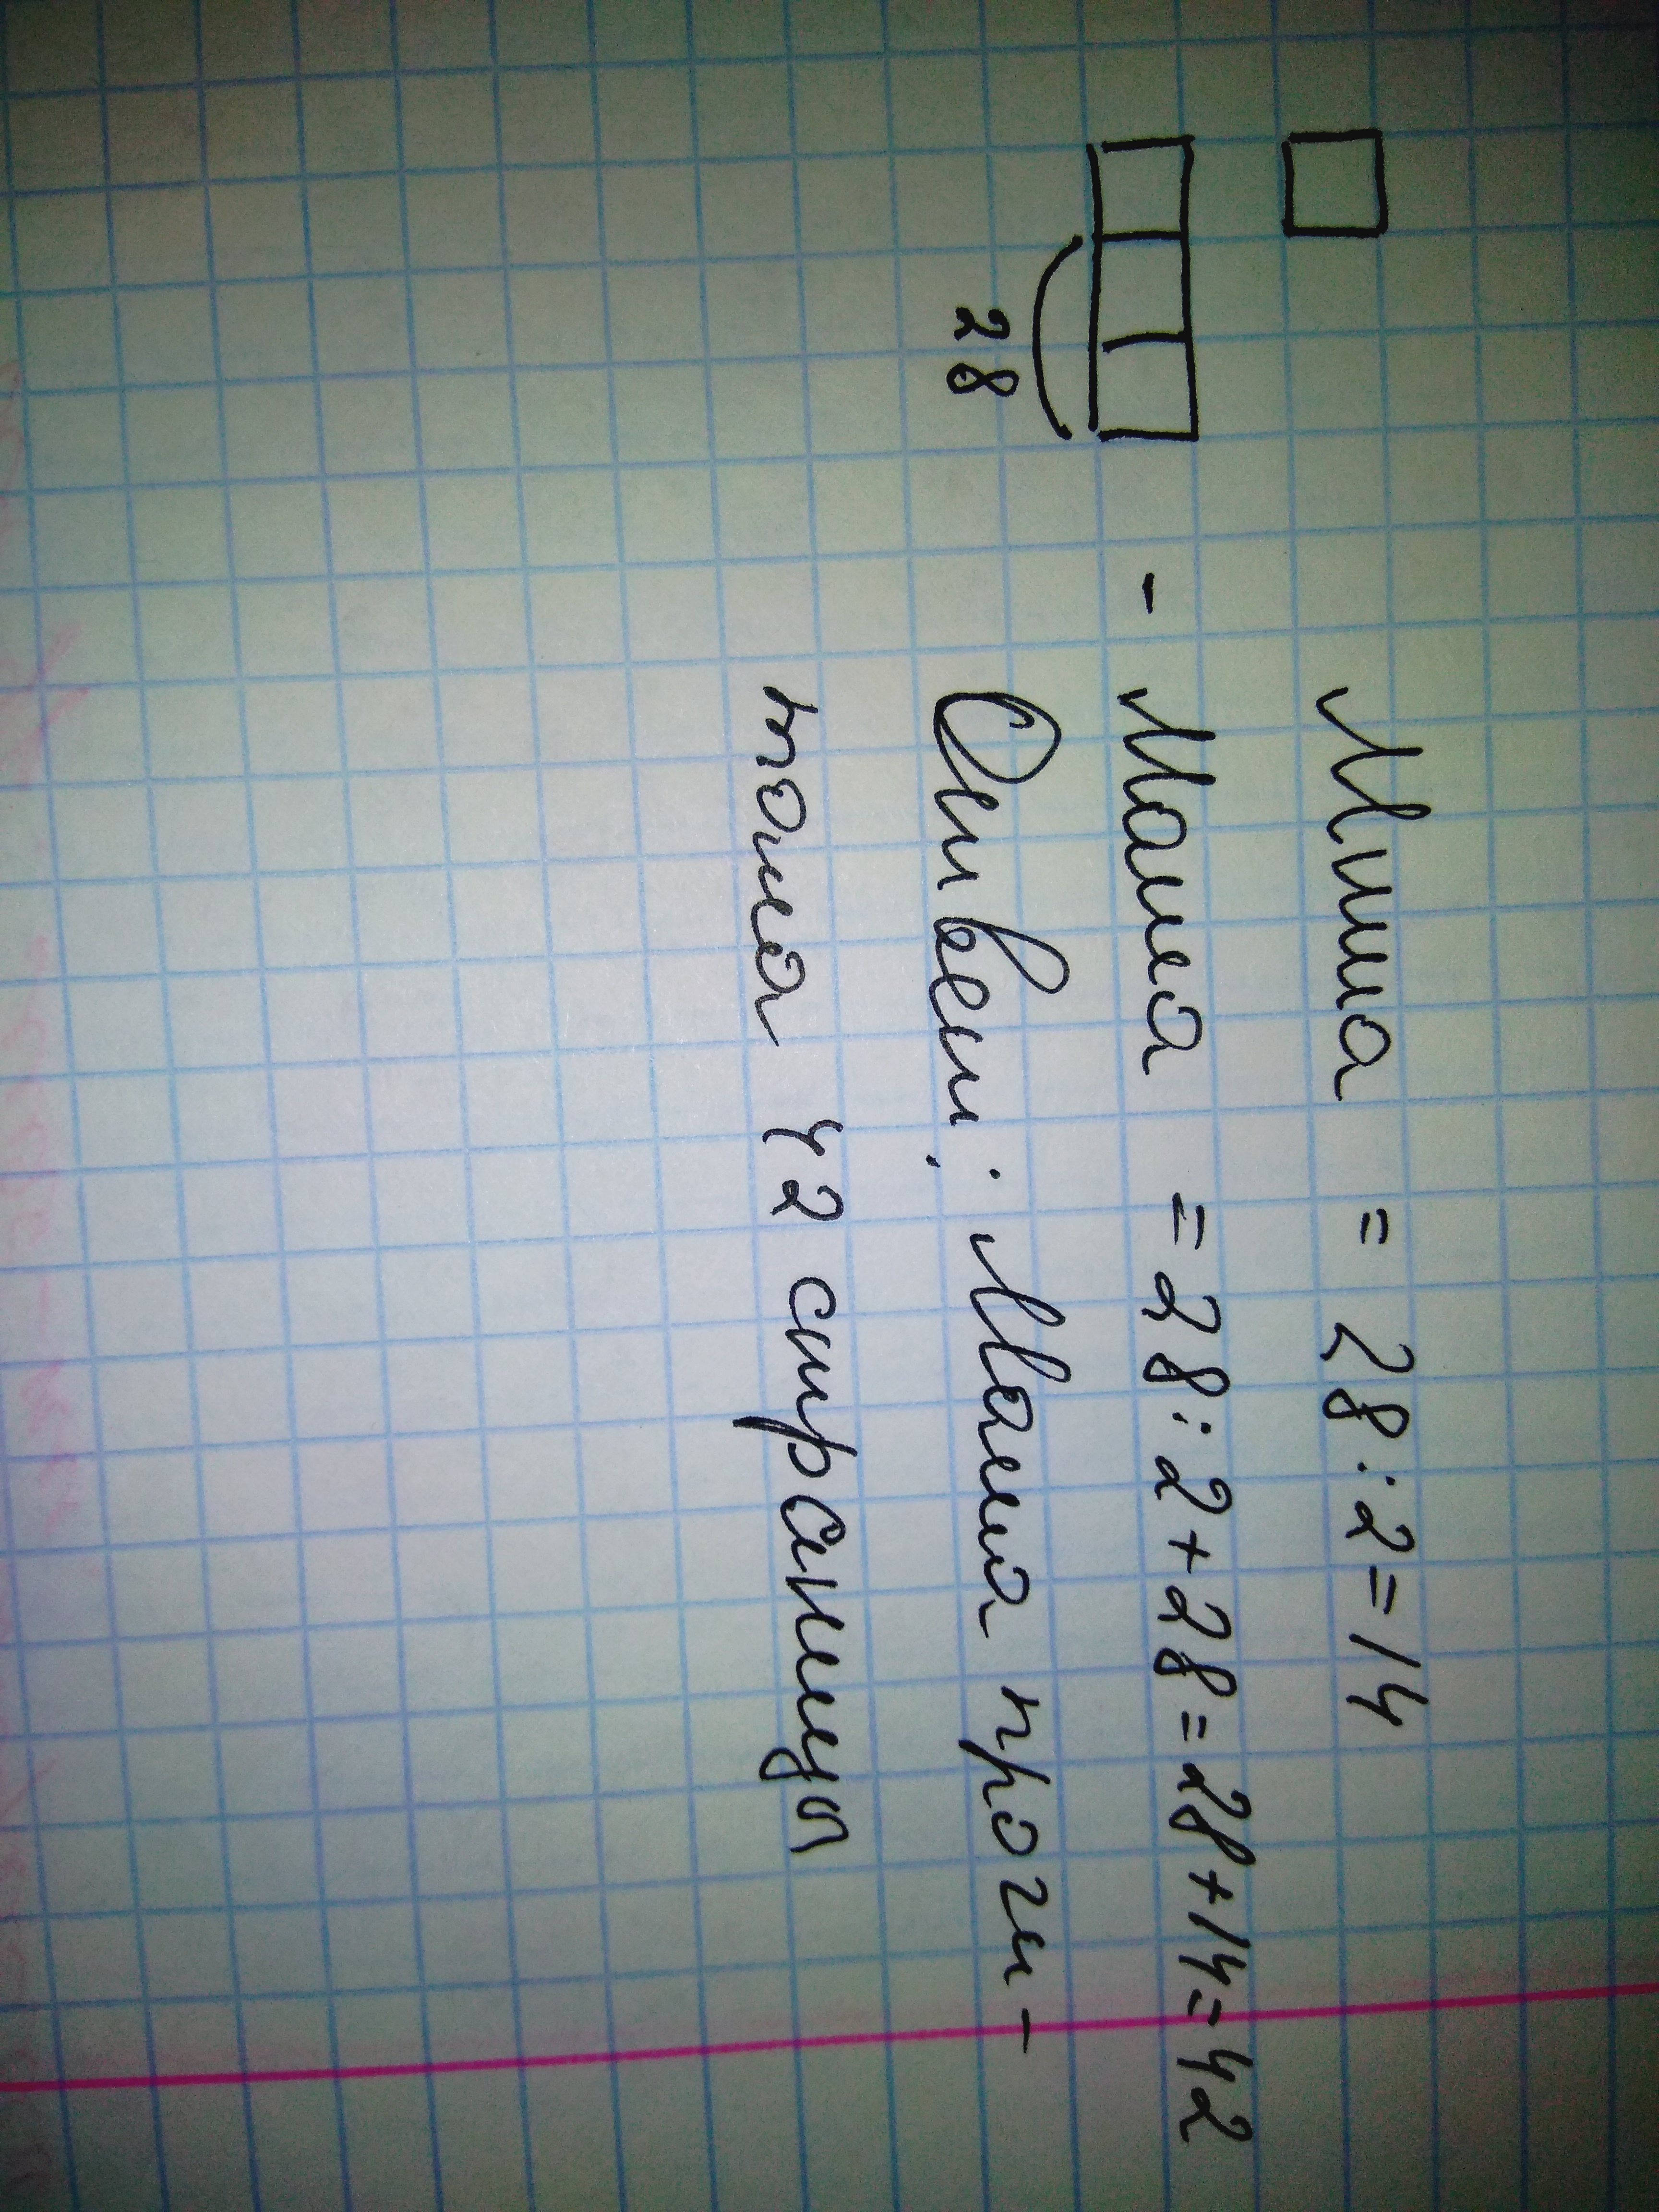 Миша = 28:2=14
- Маша = 28:2+28=28+14=42
28
Ответ: Маша прочи-
тала 42 страницы